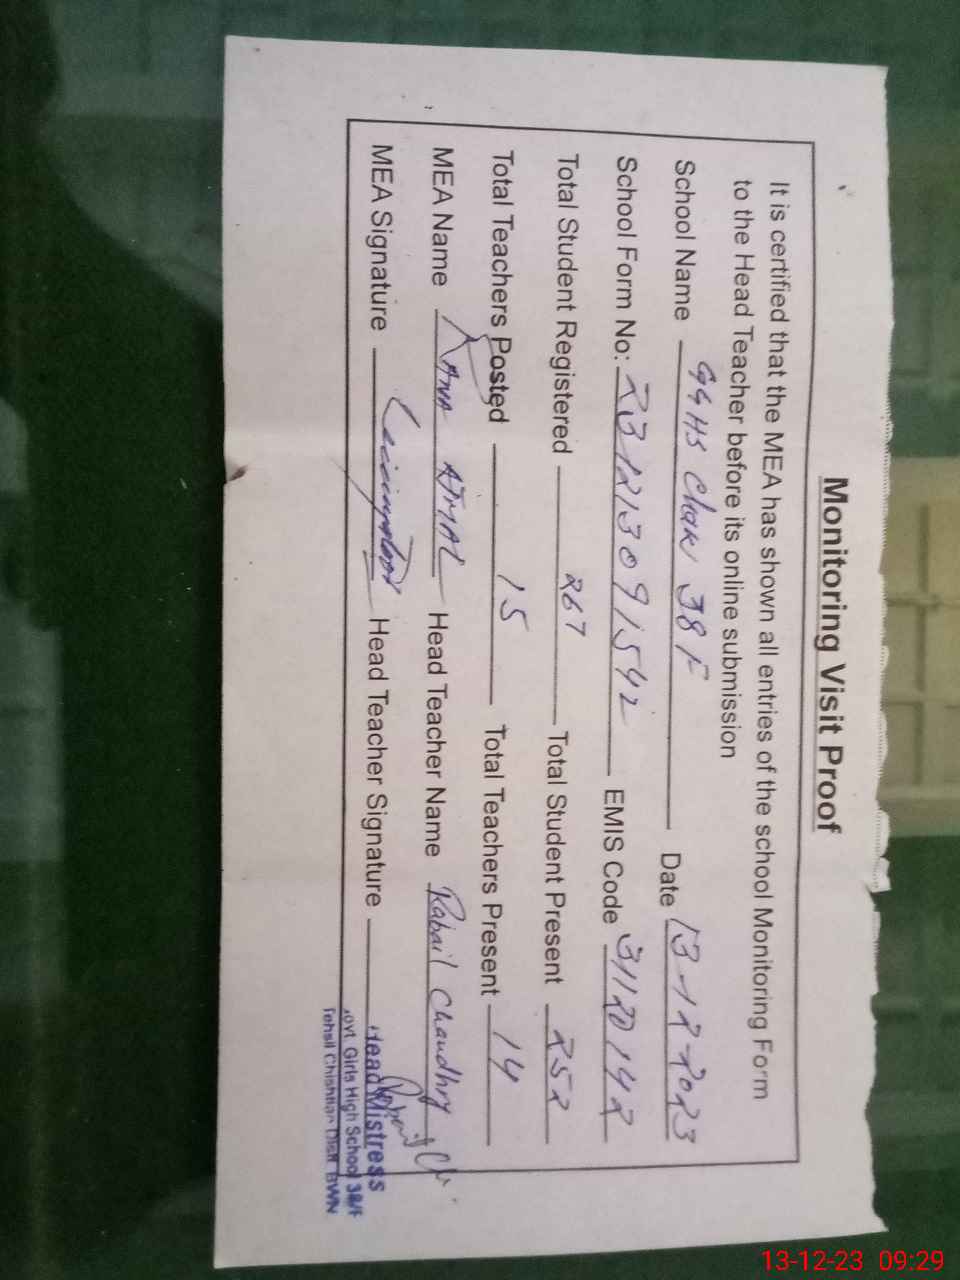 Monitoring Visit Proof
It is certified that the MEA has shown all entries of the school Monitoring Form
to the Head Teacher before its online submission
School Name GGHS Chak 38 F Date 13-12-2023
School Form No: 231213091542 EMIS Code 31120142
Total Student Registered 267 Total Student Present 252
Total Teachers Posted 15 Total Teachers Present 14
MEA Name RANA AJMAL Head Teacher Name Rabail Chaudhry
MEA Signature Head Teacher Signature
Head Mistress
Govt. Girls High School 38/F
Tehsil Chishtian Distt. BWN
13-12-23 09:29